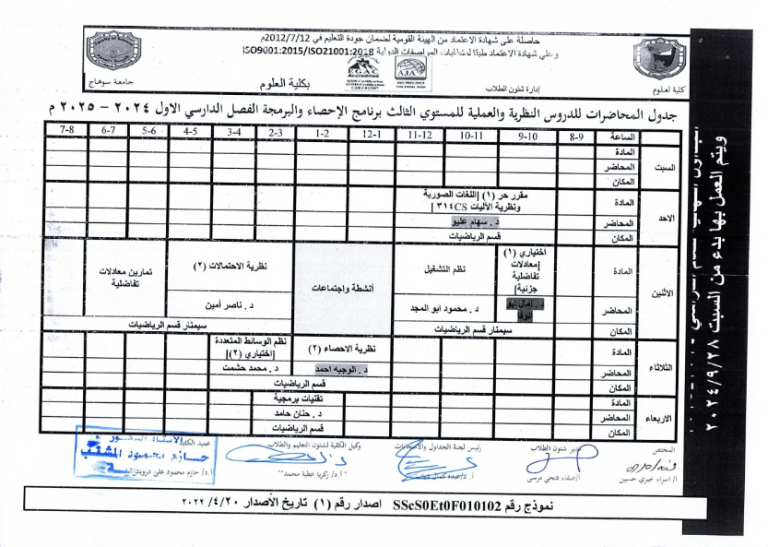 حاصلة على شهادة الاعتماد من الهيئة القومية لضمان جودة التعليم في 2012/7/12م
وعلى شهادة الاعتماد طبقا لمتطلبات المواصفات الدولية ISO9001:2015/ISO21001:2018
EGAC
AJA
جامعة سوهاج
بكلية العلوم
إدارة شئون الطلاب
كلية العلوم
جدول المحاضرات للدروس النظرية والعملية للمستوي الثالث برنامج الإحصاء والبرمجة الفصل الدارسي الاول ٢٠٢٤ – ٢٠٢٥ م
الساعة 8-9 9-10 10-11 11-12 12-1 1-2 2-3 3-4 4-5 5-6 6-7 7-8
السبت
المادة
المحاضر
المكان
الاحد
المادة
مقرر حر (١) [اللغات الصورية
ونظرية الآليات ٣١٤CS ]
المحاضر
د . سهام عليو
المكان
قسم الرياضيات
الاثنين
المادة
اختياري (١)
[معادلات
تفاضلية
جزئية]
نظم التشغيل
أنشطة واجتماعات
نظرية الاحتمالات (٢)
تمارين معادلات
تفاضلية
المحاضر
د. امال ابو
الوفا
د . محمود ابو المجد
د . ناصر أمين
المكان
سيمنار قسم الرياضيات
سيمنار قسم الرياضيات
الثلاثاء
المادة
نظرية الاحصاء (٢)
نظم الوسائط المتعددة
[اختياري (٢)]
المحاضر
د . الوجيه احمد
د . محمد حشمت
المكان
قسم الرياضيات
الاربعاء
المادة
تقنيات برمجية
المحاضر
د . حنان حامد
المكان
قسم الرياضيات
ويتم العمل بها بدء من السبت ٢٠٢٤/٩/٢٨
المختص
مدير شئون الطلاب
رئيس لجنة الجداول والامتحانات
وكيل الكلية لشئون التعليم والطلاب
عميد الكلية
الأستاذ الدكتور
حازم محمود المشنب
أ/ اسراء خيري حسين
أ/صفاء فتحي مرسى
"أ.د/ زكريا عطية محمد"
أ.د/ حازم محمود على درويش
نموذج رقم SScS0Et0F010102 اصدار رقم (١) تاريخ الأصدار ٢٠٢٢/٤/٢٠